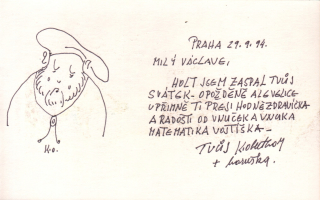 PRAHA 29.9.94.
MILÝ VÁCLAVE,
HOLT JSEM ZASPAL TVŮJ
SVÁTEK - OPOŽDĚNĚ ALE VELICE
UPŘIMNĚ TI PŘEJI HODNĚ ZDRAVÍČKA
A RADOSTI OD VNUČEK A VNUKA
MATEMATIKA VOJTÍŠKA -
Tvůj
+
K.O.